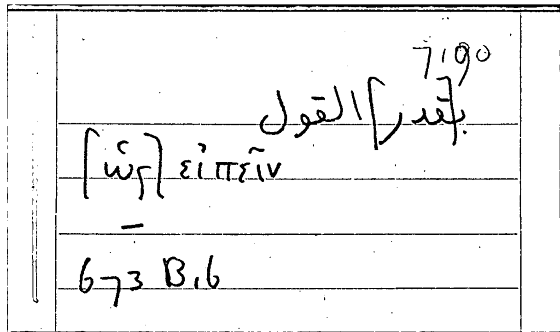 7190
[بقدر] القول
[ὡς] εἰπεῖν
—
673 B16